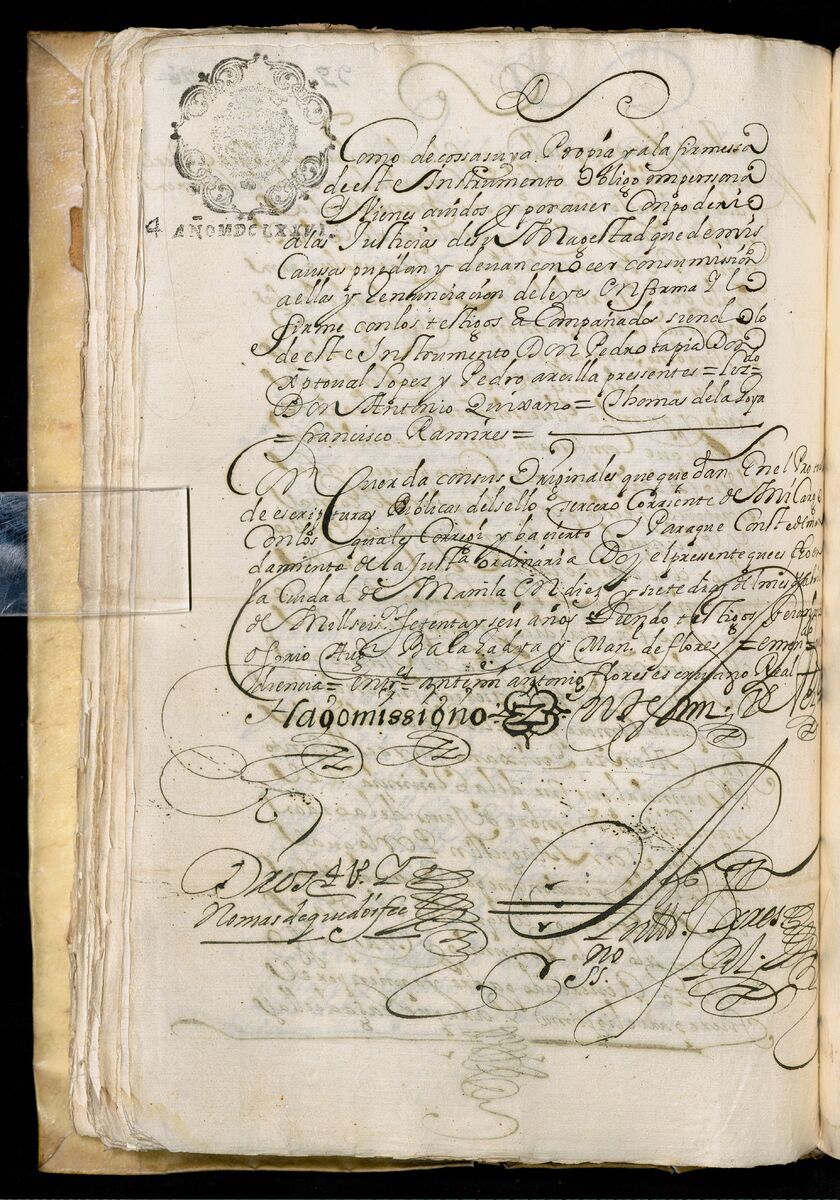 Como de cossa suya Propia y a la firmessa
de este Instrumento obligo mi persona
Y Vienes auidos y por auer Con poderio
a las Justicias de su Magestad que de mis
Caussa puedan y deuan conocer con sumission
a ellas y Renunciacion de leyes en forma Y lo
firme con los testigos a Compañados siendolo
de este Instrumento Don Pedro tapia Don
Xptoual Lopez y Pedro arcilla pressentes =
Don Antonio Quixano = Thomas de la
= francisco Ramires =
4 AÑO MDCLXXVI.
Con Cuerda con sus Originales que quedan En el
de escripturas Publicas del sello tercero Corriente de Mi Cargo
Con los quales Correxi y ba cierto Y Para que Conste
damiento de la Justa ordinaria Doy el presente que es fho en
la Ciudad de Manila En diez y siete dias del mes de
de Mill seisº Setenta y seis años siendo testigos
osorio Balahadia y Man. de flores = emon
diencia = antonio flores escriuano Real
Hago mi signo
Dros 4 Rs. Y
No mas de que doi fee
Antto. flores
no
ss.